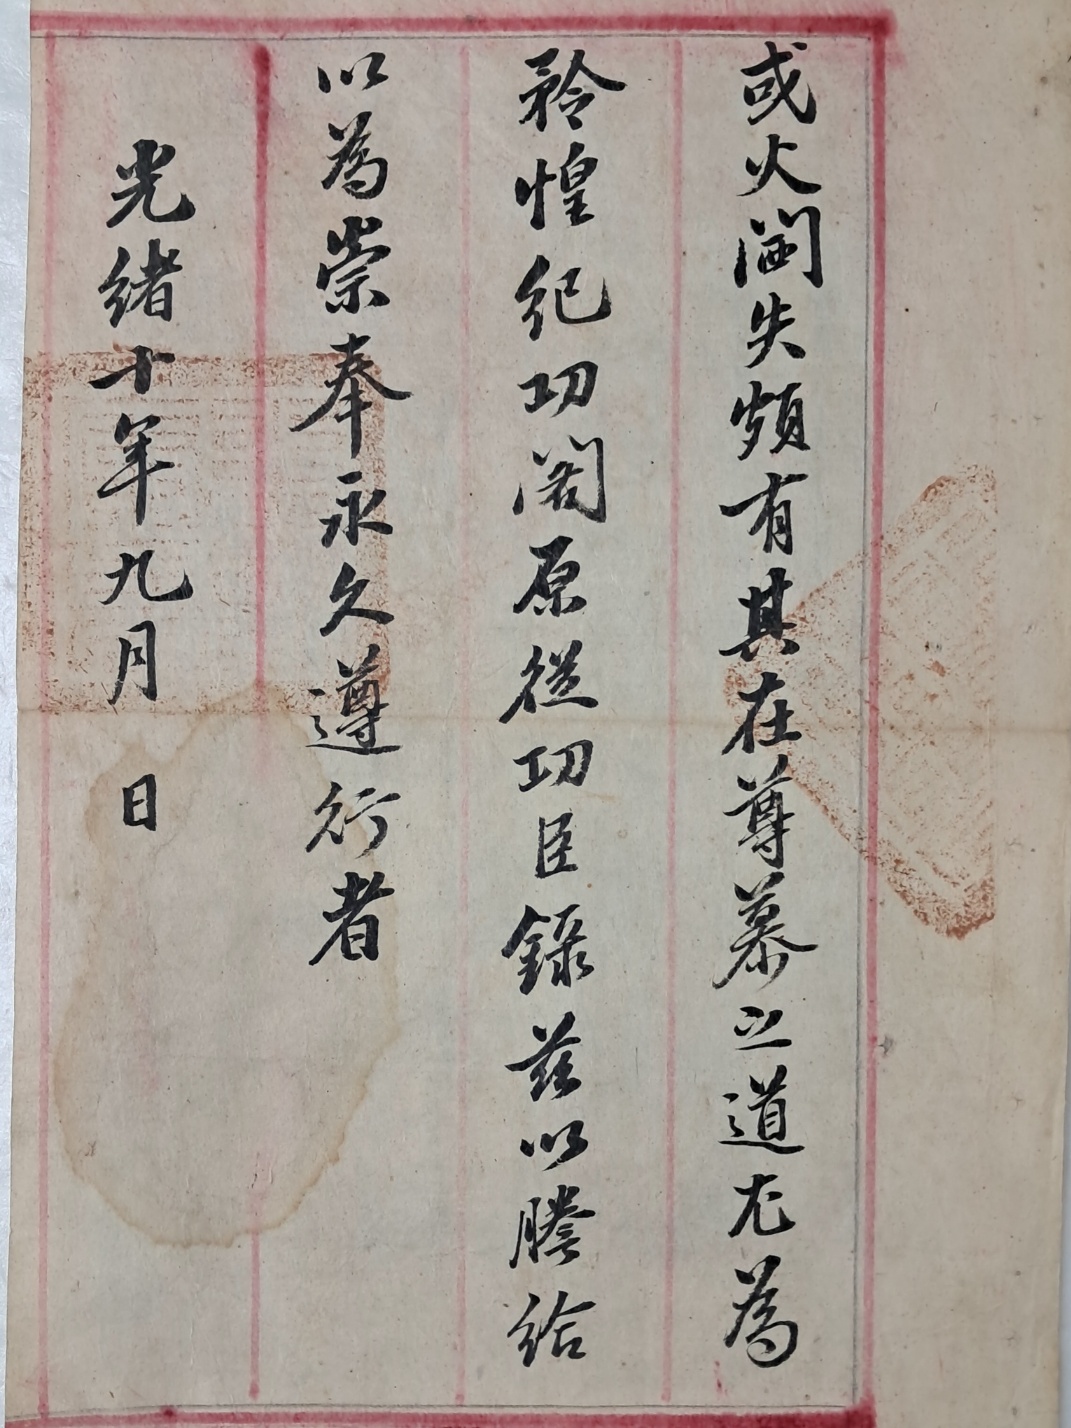 或火闏失頗有其在尊慕之道尤為
矜惶紀功閣原從功臣錄茲以謄給
以為崇奉永久遵行者
光緒十年九月 日